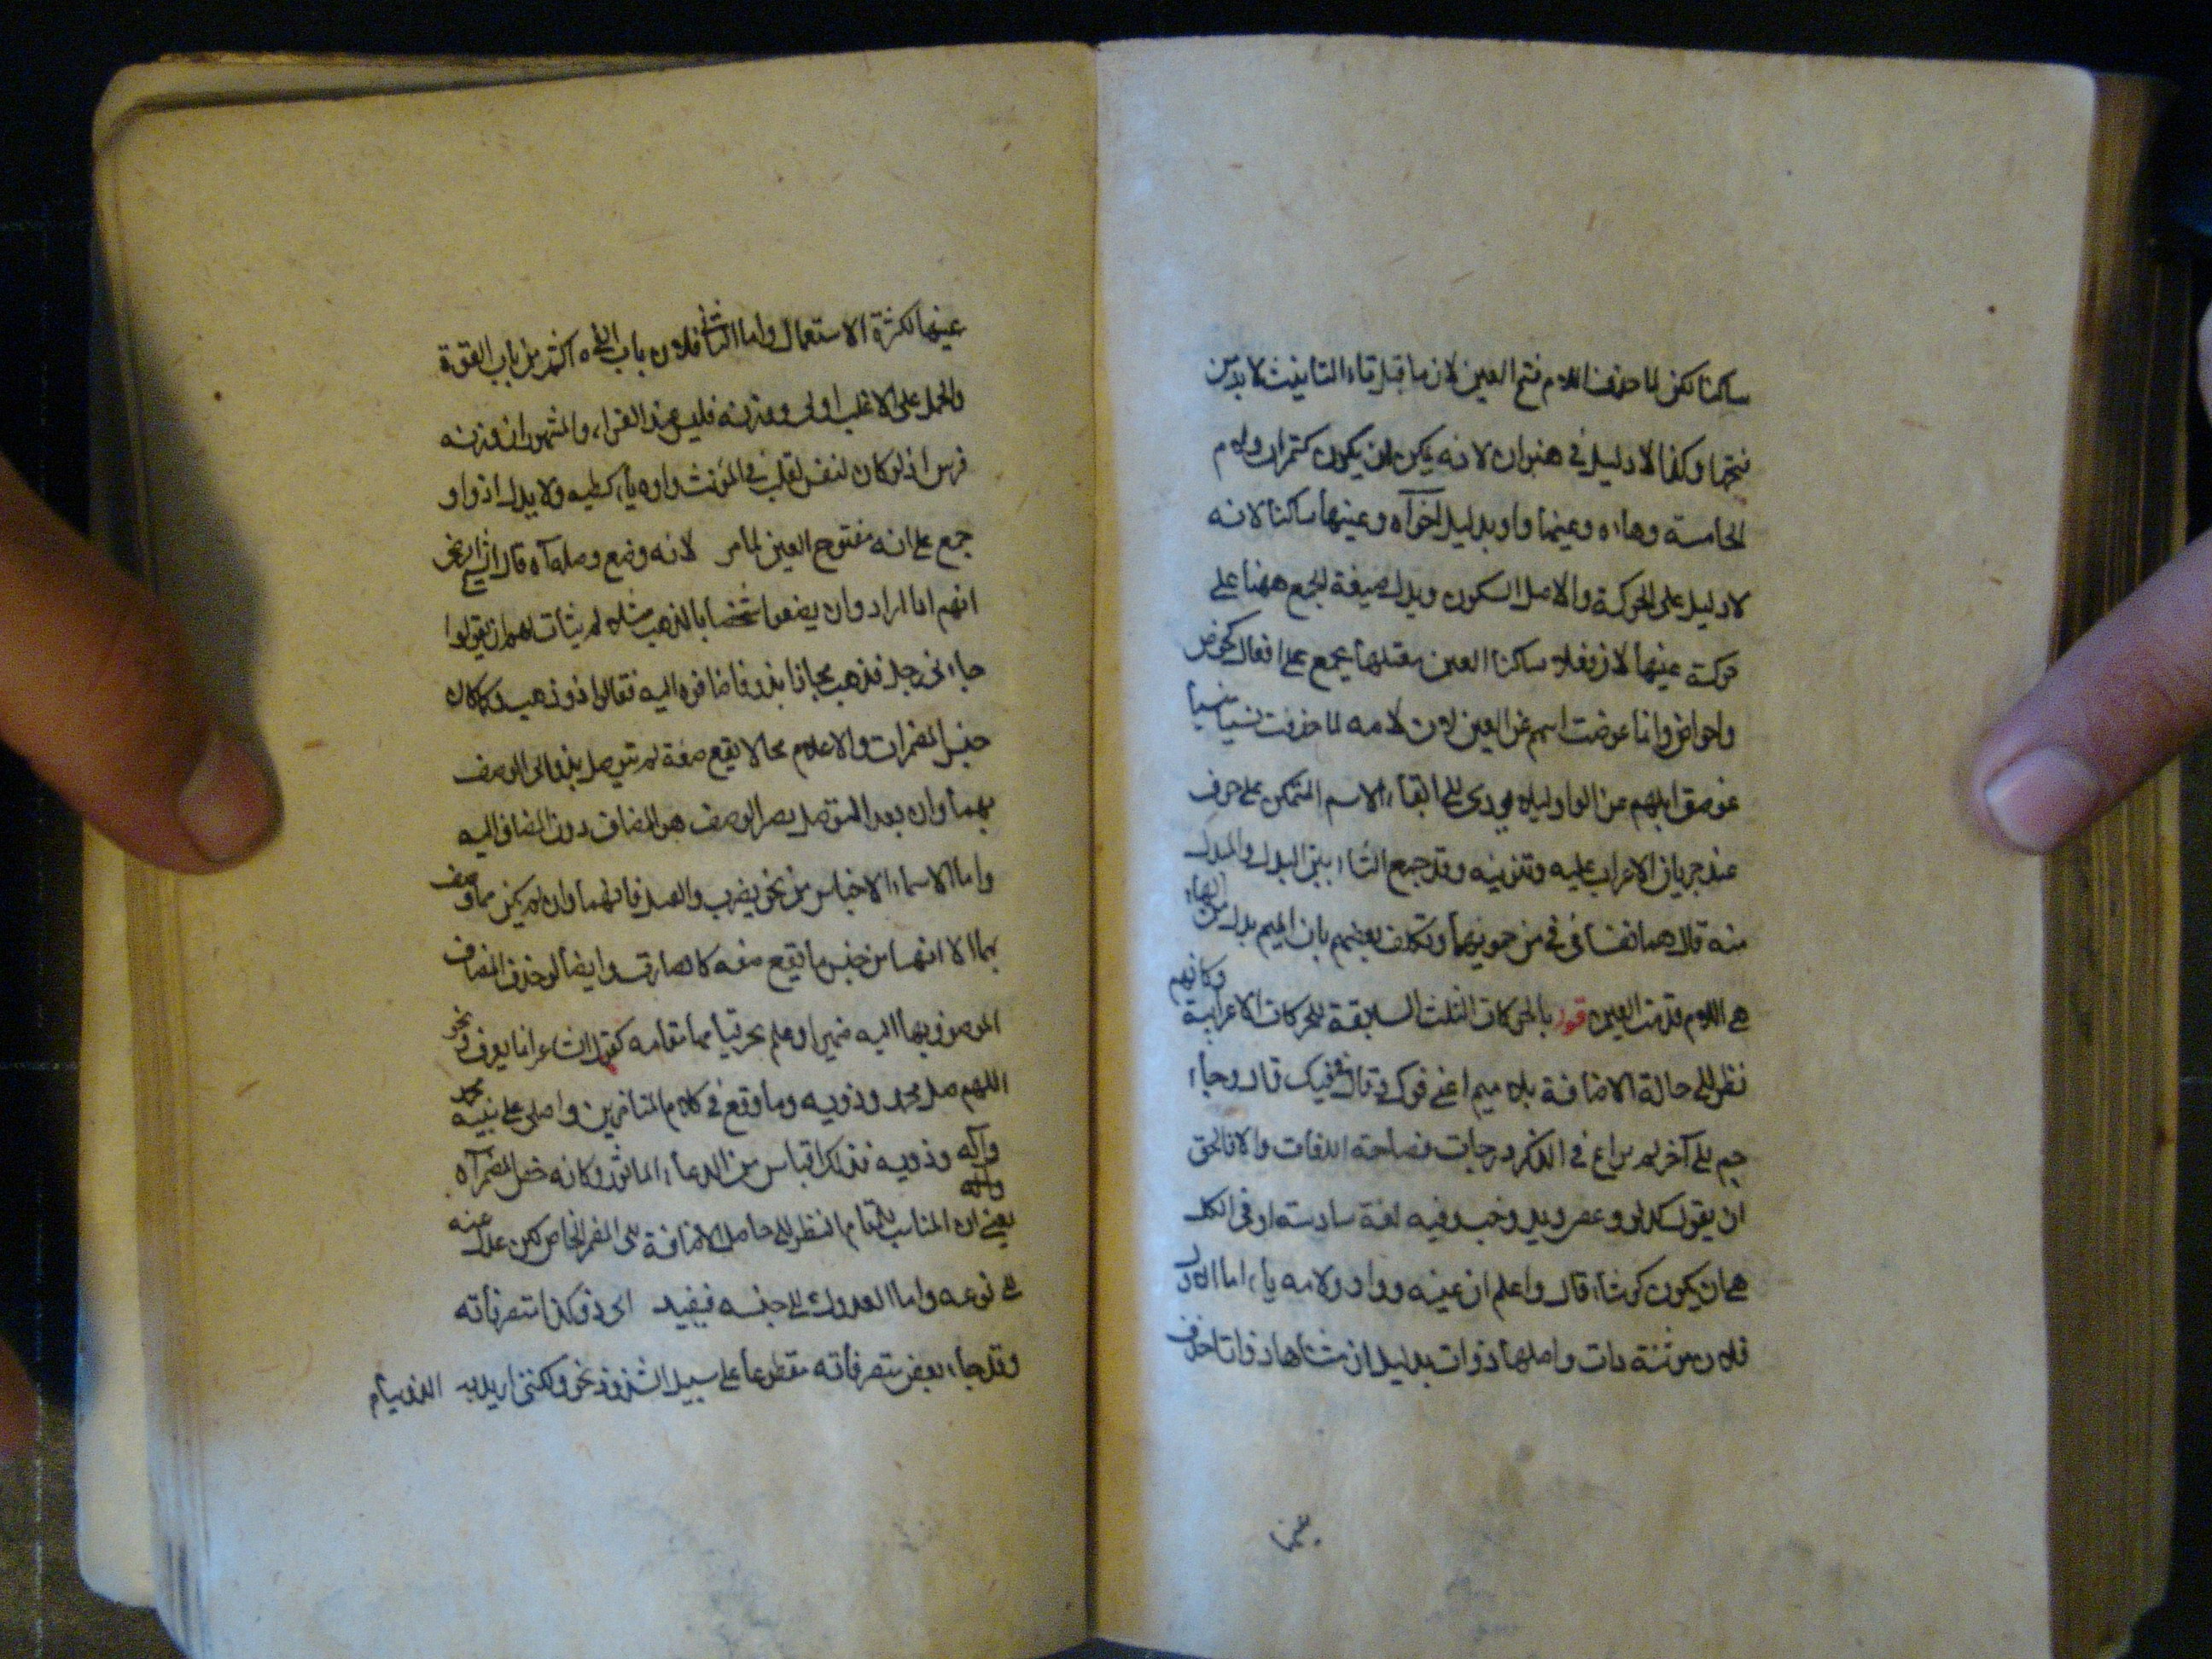 ساكنا لكن لما حذفت اللام فتح العين لان ما قبل تاء التانيث لا بد من
فتحها وكذا لا دليل في هنوان لانه يمكن ان يكون كتمران ولام
الخامسة وهاء وعينها واو بدليل افواه وعينها ساكنا لانه
لا دليل على الحركة والاصل السكون ويدل صيغة الجمع ههنا على
حركة عينها لان فعلا ساكنا العين معتلها يجمع على افعال كحوض
واحواض وانما عوضت الميم عن العين لان لامه لما حذفت نسيا منسيا
عوضوا الميم عن الواو ليلا يودى الى ابقاء الاسم المتمكن على حرف
عند جريان الاعراب عليه وتنوينه وقد جمع الشاعر بين البدل والمبدل
منه قال هما نفثا في في من فمويهما وتكلف بعضهم بان الميم بدل من الهاء
هي اللام قدمت العين قوله بالحركات الثلث السابقة للحركات الاعرابية وكانهم
نظر الى حالة الاضافة بلا ميم اعني فوك وفاك وفيك قال وجاء
حم الى آخره لم يراع في الذكر درجات فصاحة اللغات والا فالحق
ان يقول كدلو وعصا ويد وخبء وفيه لغة سادسة اوفى الكل
هي ان يكون كرشاء قال واعلم ان عينه واو ولامه ياء اما الاول
فلان مؤنثه ذات واصلها ذوات بدليل ان مثناها ذواتا حذف
عينها
عينها لكثرة الاستعمال واما الثاني فلان باب الطي اكثر من باب القوة
والحمل على الاغلب اولى ووزنه فلس عند الفراء والمشهور ان وزنه
فرس اذ لو كان لنفس لقلب في المؤنث واوه ياء كطية ولا يدل اذواو
جمع على انه مفتوح العين لما مر لانه وضع وصلة آه قال الشيخ الرضى
انهم اذا ارادوا ان يصفوا شخصا بالذهب مثلا لم يتات لهم ان يقولوا
جاءني رجل ذهب فجاؤا بذو فاضافوه اليه فقالوا ذو ذهب ولما كان
جنس المضمرات والاعلام مما لا يقع صفة لم يتوصل بذو الى الوصف
بهما وان بعد التوصل يصير الوصف هو المضاف دون المضاف اليه
واما الاسماء الاجناس من نحو الضرب والعسل فانهما وان لم يكن مما وصف
بها الا انها من جنس ما يقع صفة كالضارب وايضا لو حذف المضاف
الموصوف بها اليه ضمير او علم بحر قياما مقامه كقول الشاعر انما يعرف ونحو
اللهم صل محمد وذويه وما وقع في كلام المتاخرين واصلى على نبيه محمد
وآله وذويه فذلك اقتباس من الدعاء الماثور وكانه خص المضمر آه
يعني ان المناسب بالمقام النظر الى حاصل الاضافة الى المضمر الخاص لكن عدل عنه
الى نوعه واما العدول الى جنسه فيفيد اى ذو وكذا متصرفاته
وقد جاء بعض متصرفاته مقطوعا على سبيل الشذوذ نحو ولكني اريد به الذوينا م